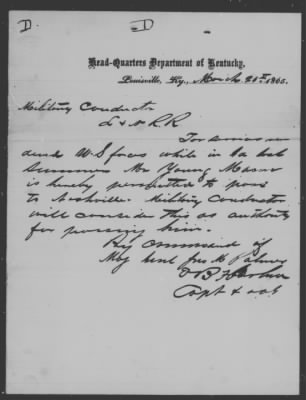 D D
Head-Quarters Department of Kentucky,
Louisville, Ky., March 21st 1865.
Military Conductor
L & N RR
For services
under U.S forces while in
Mr Young Mason
is hereby permitted to pass
to Nashville. Military Conductor
will consider this as authority
for passing him.
By Command of
Maj Genl Jno M Palmer
Capt &